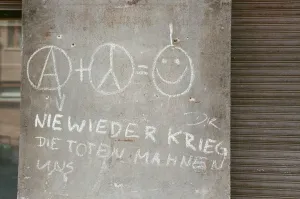 A + ☮ = ☺
NIE WIEDER KRIEG
DIE TOTEN MAHNEN
UNS